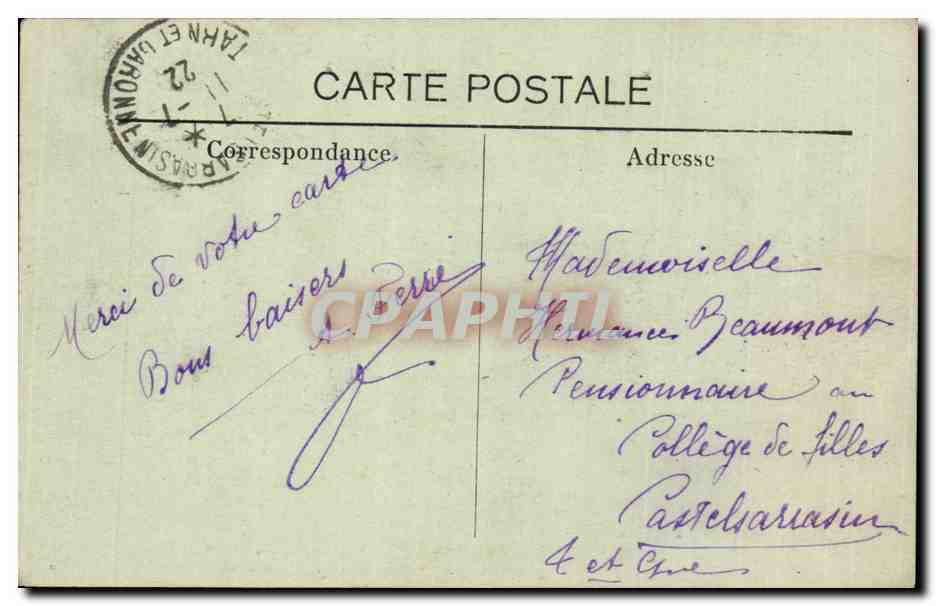 CARTE POSTALE
Correspondance
Adresse
CASTELSARRASIN
TARN ET GARONNE
7 -1
22
Merci de votre carte.
Bons baisers
A. Serre
Mademoiselle
Hermances Beaumont
Pensionnaire au
Collège de filles
Castelsarrasin
T et Gne
CPAPHIL